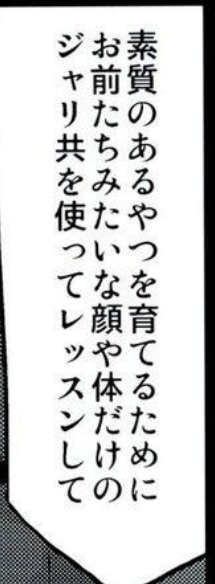 素質のあるやつを育てるために
お前たちみたいな顔や体だけの
ジャリ共を使ってレッスンして